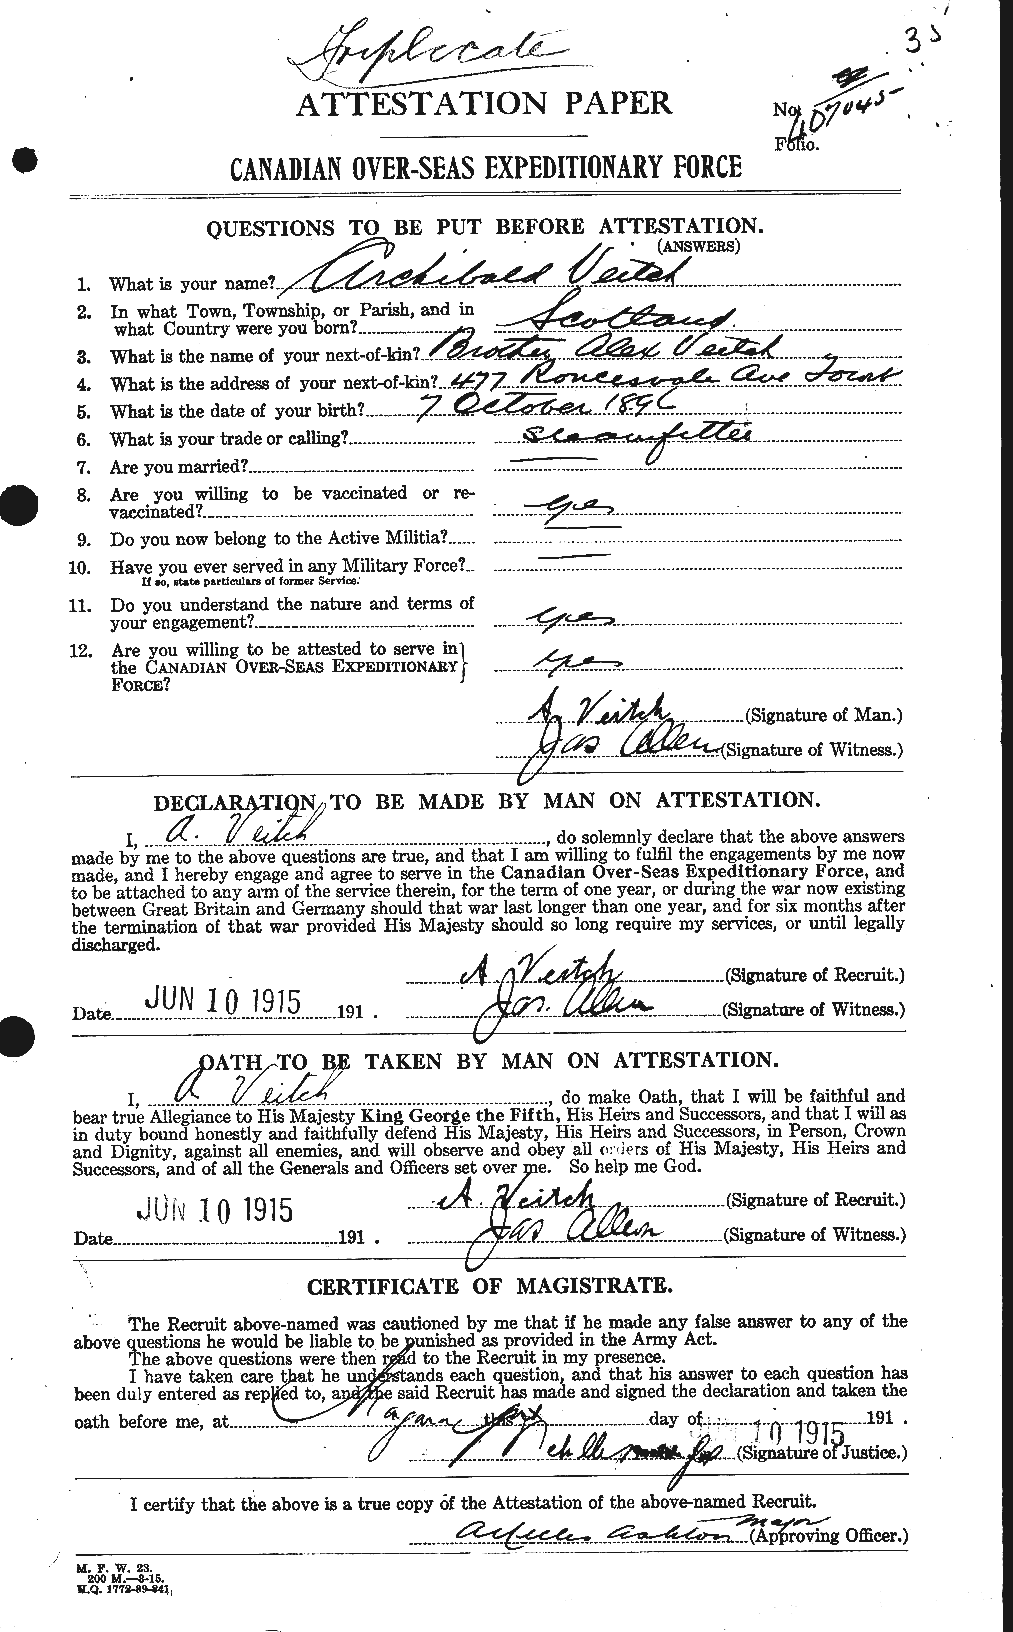 35
Triplicate
ATTESTATION PAPER
No. 407045
Folio.
CANADIAN OVER-SEAS EXPEDITIONARY FORCE
QUESTIONS TO BE PUT BEFORE ATTESTATION.
(ANSWERS)
1. What is your name? Archibald Veitch
2. In what Town, Township, or Parish, and in
what Country were you born? Scotland.
3. What is the name of your next-of-kin? Brother Alex Veitch
4. What is the address of your next-of-kin? 477 Roncesvale Ave Toront
5. What is the date of your birth? 7 October 1896
6. What is your trade or calling? Steamfitter
7. Are you married? —
8. Are you willing to be vaccinated or re-
vaccinated? yes
9. Do you now belong to the Active Militia? —
10. Have you ever served in any Military Force? —
If so, state particulars of former Service.
11. Do you understand the nature and terms of
your engagement? yes
12. Are you willing to be attested to serve in
the CANADIAN OVER-SEAS EXPEDITIONARY yes
FORCE?
A Veitch (Signature of Man.)
Jas Allen (Signature of Witness.)
DECLARATION TO BE MADE BY MAN ON ATTESTATION.
I, A. Veitch, do solemnly declare that the above answers
made by me to the above questions are true, and that I am willing to fulfil the engagements by me now
made, and I hereby engage and agree to serve in the Canadian Over-Seas Expeditionary Force, and
to be attached to any arm of the service therein, for the term of one year, or during the war now existing
between Great Britain and Germany should that war last longer than one year, and for six months after
the termination of that war provided His Majesty should so long require my services, or until legally
discharged.
A Veitch (Signature of Recruit.)
Date JUN 10 1915 191 . Jas. Allen (Signature of Witness.)
OATH TO BE TAKEN BY MAN ON ATTESTATION.
I, A Veitch, do make Oath, that I will be faithful and
bear true Allegiance to His Majesty King George the Fifth, His Heirs and Successors, and that I will as
in duty bound honestly and faithfully defend His Majesty, His Heirs and Successors, in Person, Crown
and Dignity, against all enemies, and will observe and obey all orders of His Majesty, His Heirs and
Successors, and of all the Generals and Officers set over me. So help me God.
A. Veitch (Signature of Recruit.)
Date JUN 10 1915 191 . Jas Allen (Signature of Witness.)
CERTIFICATE OF MAGISTRATE.
The Recruit above-named was cautioned by me that if he made any false answer to any of the
above questions he would be liable to be punished as provided in the Army Act.
The above questions were then read to the Recruit in my presence.
I have taken care that he understands each question, and that his answer to each question has
been duly entered as replied to, and the said Recruit has made and signed the declaration and taken the
oath before me, at this day of 10 1915 191 .
(Signature of Justice.)
I certify that the above is a true copy of the Attestation of the above-named Recruit.
Ashton Major (Approving Officer.)
M. F. W. 23.
200 M.—3-15.
H.Q. 1772-39-841.